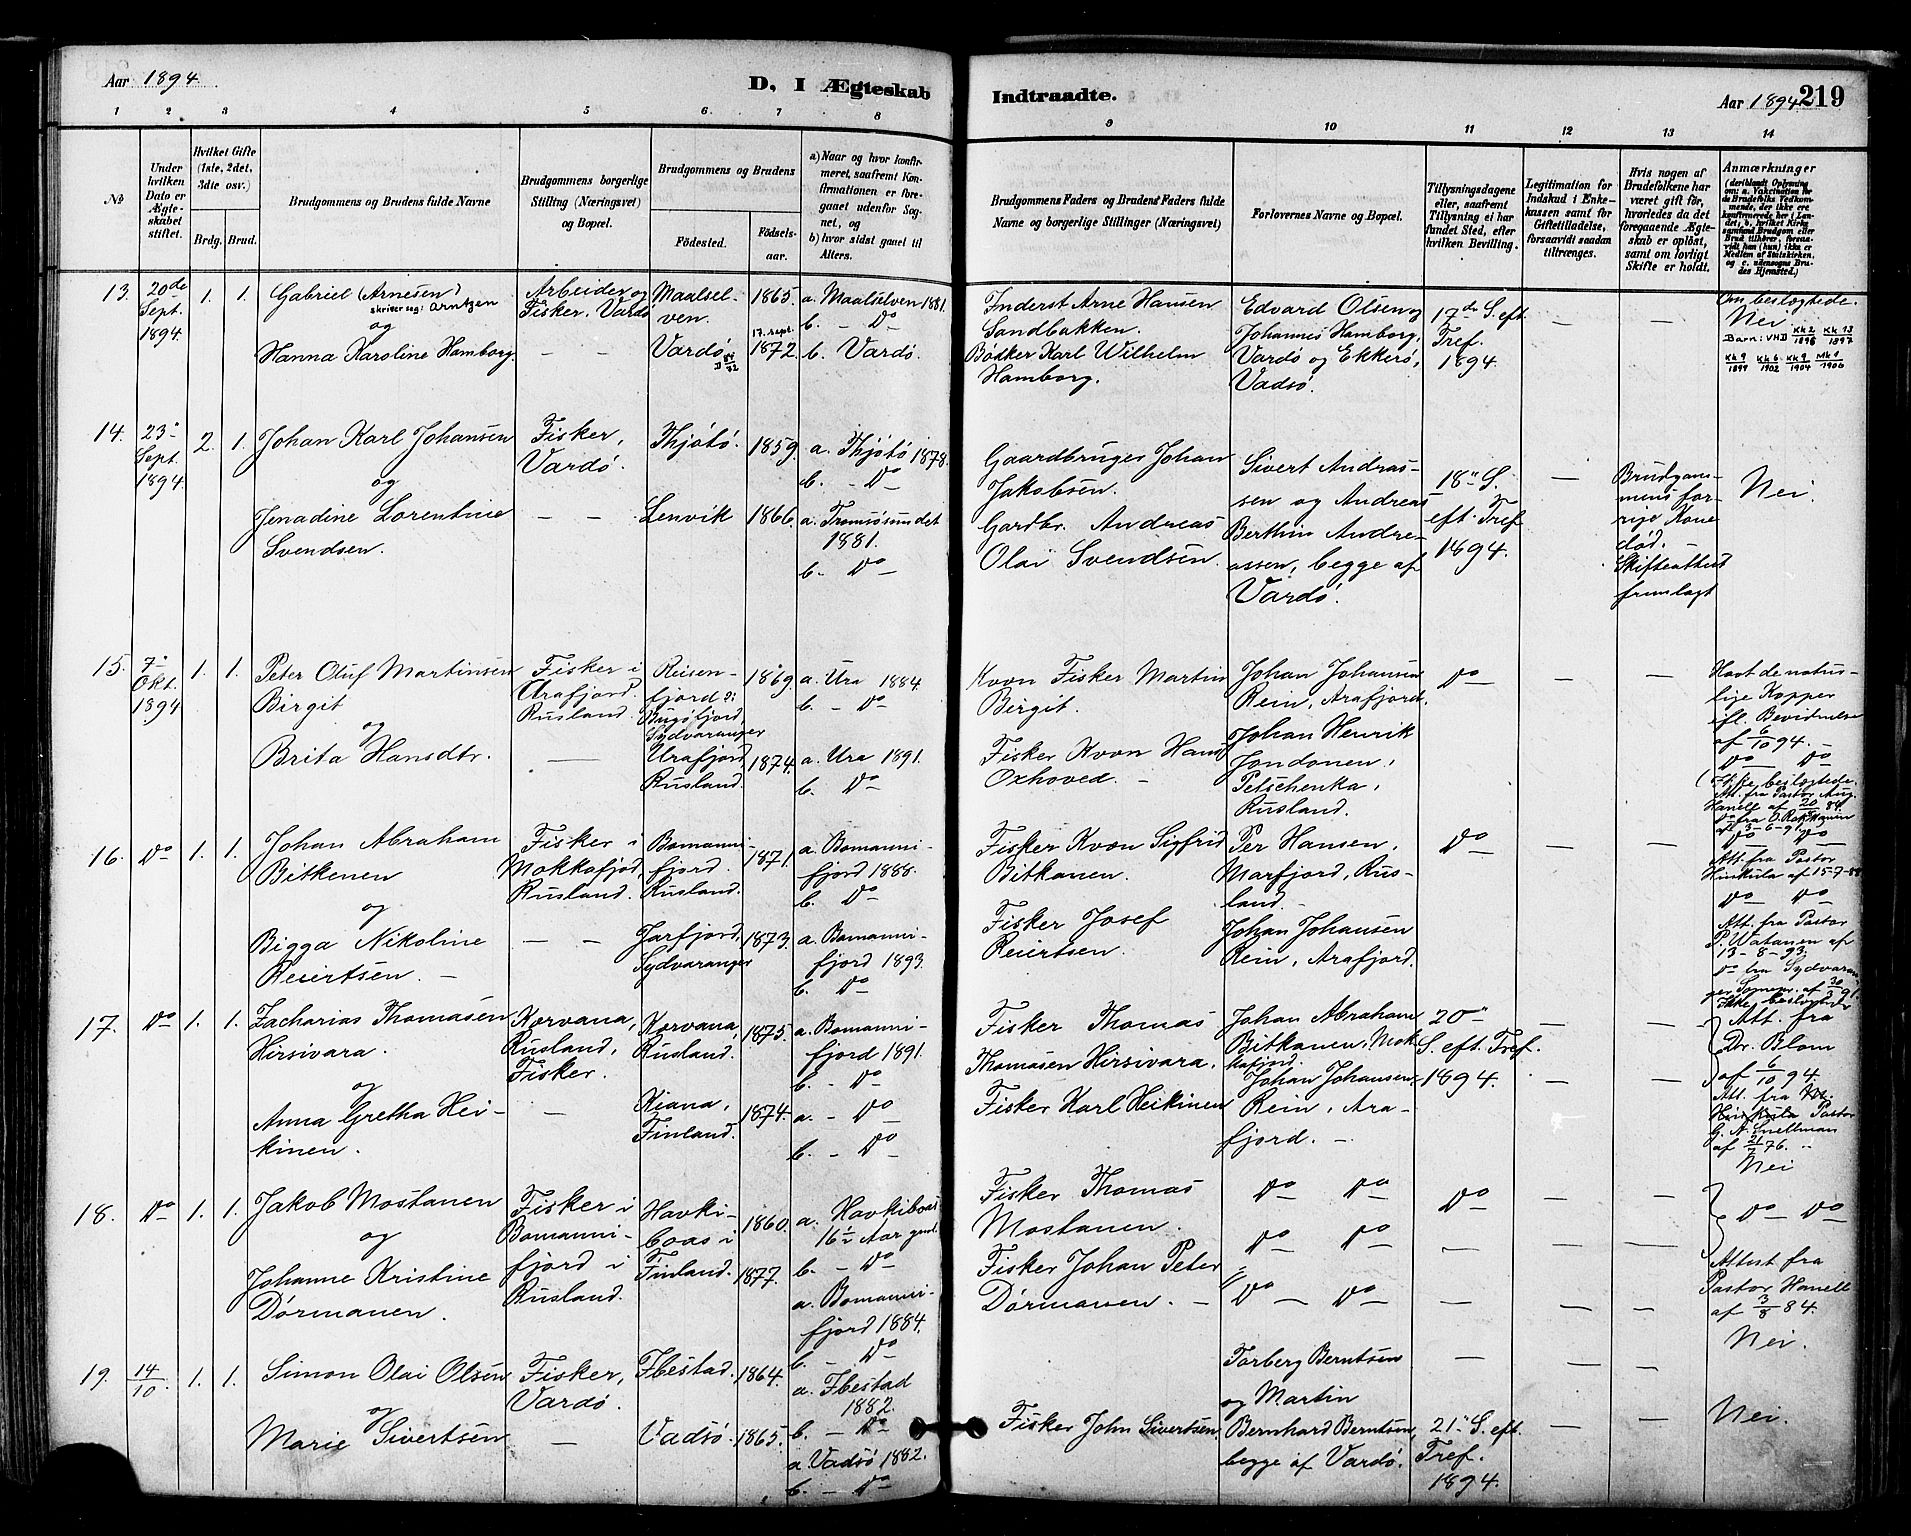 Aar 1894.
D, I Ægteskab
Indtraadte.
Aar 1894 219
1 2 3 4 5 6 7 8 9 10 11 12 13 14
No
Under hvilken Dato er Ægteskabet stiftet.
Hvilket Gifte (1ste, 2det, 3die osv.)
Brdg. Brud.
Brudgommens og Brudens fulde Navne
Brudgommens borgerlige Stilling (Næringsvei) og Bopæl.
Brudgommens og Brudens
Fødested.
Fødselsaar.
a) Naar og hvor konfirmeret, saafremt Konfirmationen er foregaaet udenfor Sognet, og
b) hvor sidst gaaet til Alters.
Brudgommens Faders og Brudens Faders fulde Navne og borgerlige Stillinger (Næringsvei)
Forlovernes Navne og Bopæl.
Tillysningsdagene eller, saafremt Tillysning ei har fundet Sted, efter hvilken Bevilling.
Legitimation for Indskud i Enkekassen samt for Giftetilladelse, forsaavidt saadan tiltrænges.
Hvis nogen af Brudefolkene har været gift før, hvorledes da det foregaaende Ægteskab er opløst, samt om lovligt Skifte er holdt.
Anmærkninger
(deriblandt Oplysning om: a. Vakcination for de Brudefolks Vedkommende, der ikke ere konfirmerede her i Landet; b. hvilket Kirkesamfund Brudgom eller Brud tilhører, forsaavidt han (hun) ikke er Medlem af Statskirken, og c. udensogns Brudes Hjemsted.)
13. 20de Sept. 1894. 1. 1.
Gabriel (Arnesen)
skriver seg: Arntzen
og
Hanna Karoline Hamborg.
Arbeider og Fisker, Vardø
Maalselven. 1865. a. Maalselven 1881.
b. - Do
17. sept.
Vardø 1872. b. Vardø.
Inderst Arne Hansen
Sandbakken.
Bødker Karl Wilhelm
Hamborg.
Edvard Olsen og
Johannes Hamborg,
Vardø og Ekkerø,
Vadsø.
17de S. eft
Tref.
1894.
Om beslægtede.
Nei
Barn: VHD Kk 2/1896 Kk 13/1897
Kk 9/1899 Kk 6/1902 Kk 9/1904 Mk 1/1906
14. 23de Sept. 1894. 2. 1.
Johan Karl Johansen
og
Jenadine Lorentine
Svendsen.
Fisker,
Vardø.
Thjøtø. 1859. a. Thjøtø 1878.
b. - Do
Lenvik 1866. a. Tromsøsundet
1881.
b. Do
Gaardbruger Johan
Jakobsen.
Gardbr. Andreas
Olai Svendsen.
Sivert Andreassen og Andreas
Berthin Andreassen, begge af
Vardø.
18de S.
eft. Tref
1894.
Brudgommens forrige Kone
død.
Skifteattest
fremlagt
Nei.
15. 7de Okt. 1894 1. 1.
Peter Oluf Martinsen
Birgit
og
Brita Hansdtr.
Fisker i
Urafjord.
Rusland.
Reisenfjord
Bugøfjord,
Sydvaranger
1869. a. Ura 1884.
b. - Do
Urafjord
Rusland. 1874. a. Ura 1891.
b. Do
Kvæn Fisker Martin
Birgit.
Fisker Kvæn Hans
Oxhoved.
Johan Johansen
Rein, Arafjord.
Johan Henrik
Jondonen,
Petschenka,
Rusland.
Do
Havt de naturlige Kopper
ifl. Bevidnelse
af 6/10 94.
Do Do
Ikke beslægtede.
Att. fra Pastor Aug.
Hanell af 20/8 84.
16. Do 1. 1.
Johan Abraham
Bitkenen
og
Bigga Nikoline
Reiertsen.
Fisker i
Mokkafjord
Rusland.
Bomannifjord.
Rusland. 1871. a. Bomannifjord 1888.
b. Do
Jarfjord,
Sydvaranger 1873. a. Bomannifjord 1893.
b. Do
Fisker Kvæn Sigfrid
Bitkanen.
Fisker Josef
Reiertsen.
Per Hansen,
Marfjord, Rusland.
Johan Johansen
Rein, Arafjord.
Do
Do Do
Att. fra Pastor
Hinkula af 15-7-88
Do Do
Att. fra Pastor
P. Watanen af
13-8-93.
Do fra Sydvaranger
Ikke beslægtede
17. Do 1. 1.
Zacharias Thomasen
Hirsivara.
og
Anna Gretha Heikinen.
Korvana,
Rusland,
Fisker.
Korvana,
Rusland. 1875. a. Bomannifjord 1891.
b. - Do
Kiana,
Finland. 1874. a. - Do
b. - Do
Fisker Thomas
Thomasen Hirsivara.
Fisker Karl Heikinen
Johan Abraham
Bitkanen, Mokkafjord.
Johan Johansen
Rein, Arafjord.
20de
S. eft. Tref.
1894.
Att. fra
Dr. Blom
af 6/10 94.
Att. fra
Hinkula Pastor
G. A. Snellman
af 21/7 76.
Nei
18. Do 1. 1.
Jakob Mostanen
og
Johanne Kristine
Dørmanen.
Fisker i
Bomannifjord i
Rusland.
Havkiboas i
Finland. 1860. a. Havkiboas
16½ Aar gml.
b. - Do
1877. a. Bomannifjord 1884.
b. - Do
Fisker Thomas
Mostanen.
Fisker Johan Peter
Dørmanen.
Do Do
Do Do
Do Do
Do
Do Do
Attest fra
Pastor Hanell
af 3/8 84.
Nei.
19. 14/10. 1. 1.
Simon Olai Olsen
og
Marie Sivertsen
Fisker,
Vardø.
Ibestad. 1864. a. Ibestad
1882.
b. - Do
Vadsø. 1865. a. Vadsø 1882.
b. - Do
Fisker John Sivertsen
Torberg Berntsen
og Martin
Bernhard Berntsen,
begge af Vardø.
21de S. eft.
Tref.
1894.
Nei.